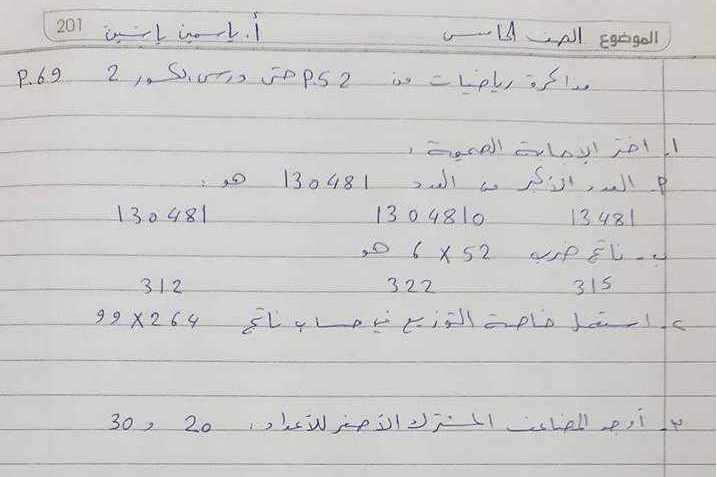 الموضوع الصف الخامس أ. ياسمين ياسين 201
مذاكرة رياضيات من P.52 حتى درس الكسور 2 P.69
1. اختر الإجابة الصحيحة :
P. العدد الأكبر من العدد 130481 هو :
13481 1304810 130481
ب- ناتج ضرب 52 × 6 هو
315 322 312
ج- استعمل خاصة التوزيع في حساب ناتج 264 × 99
2. أوجد المضاعف المشترك الأصغر للأعداد : 20 و 30